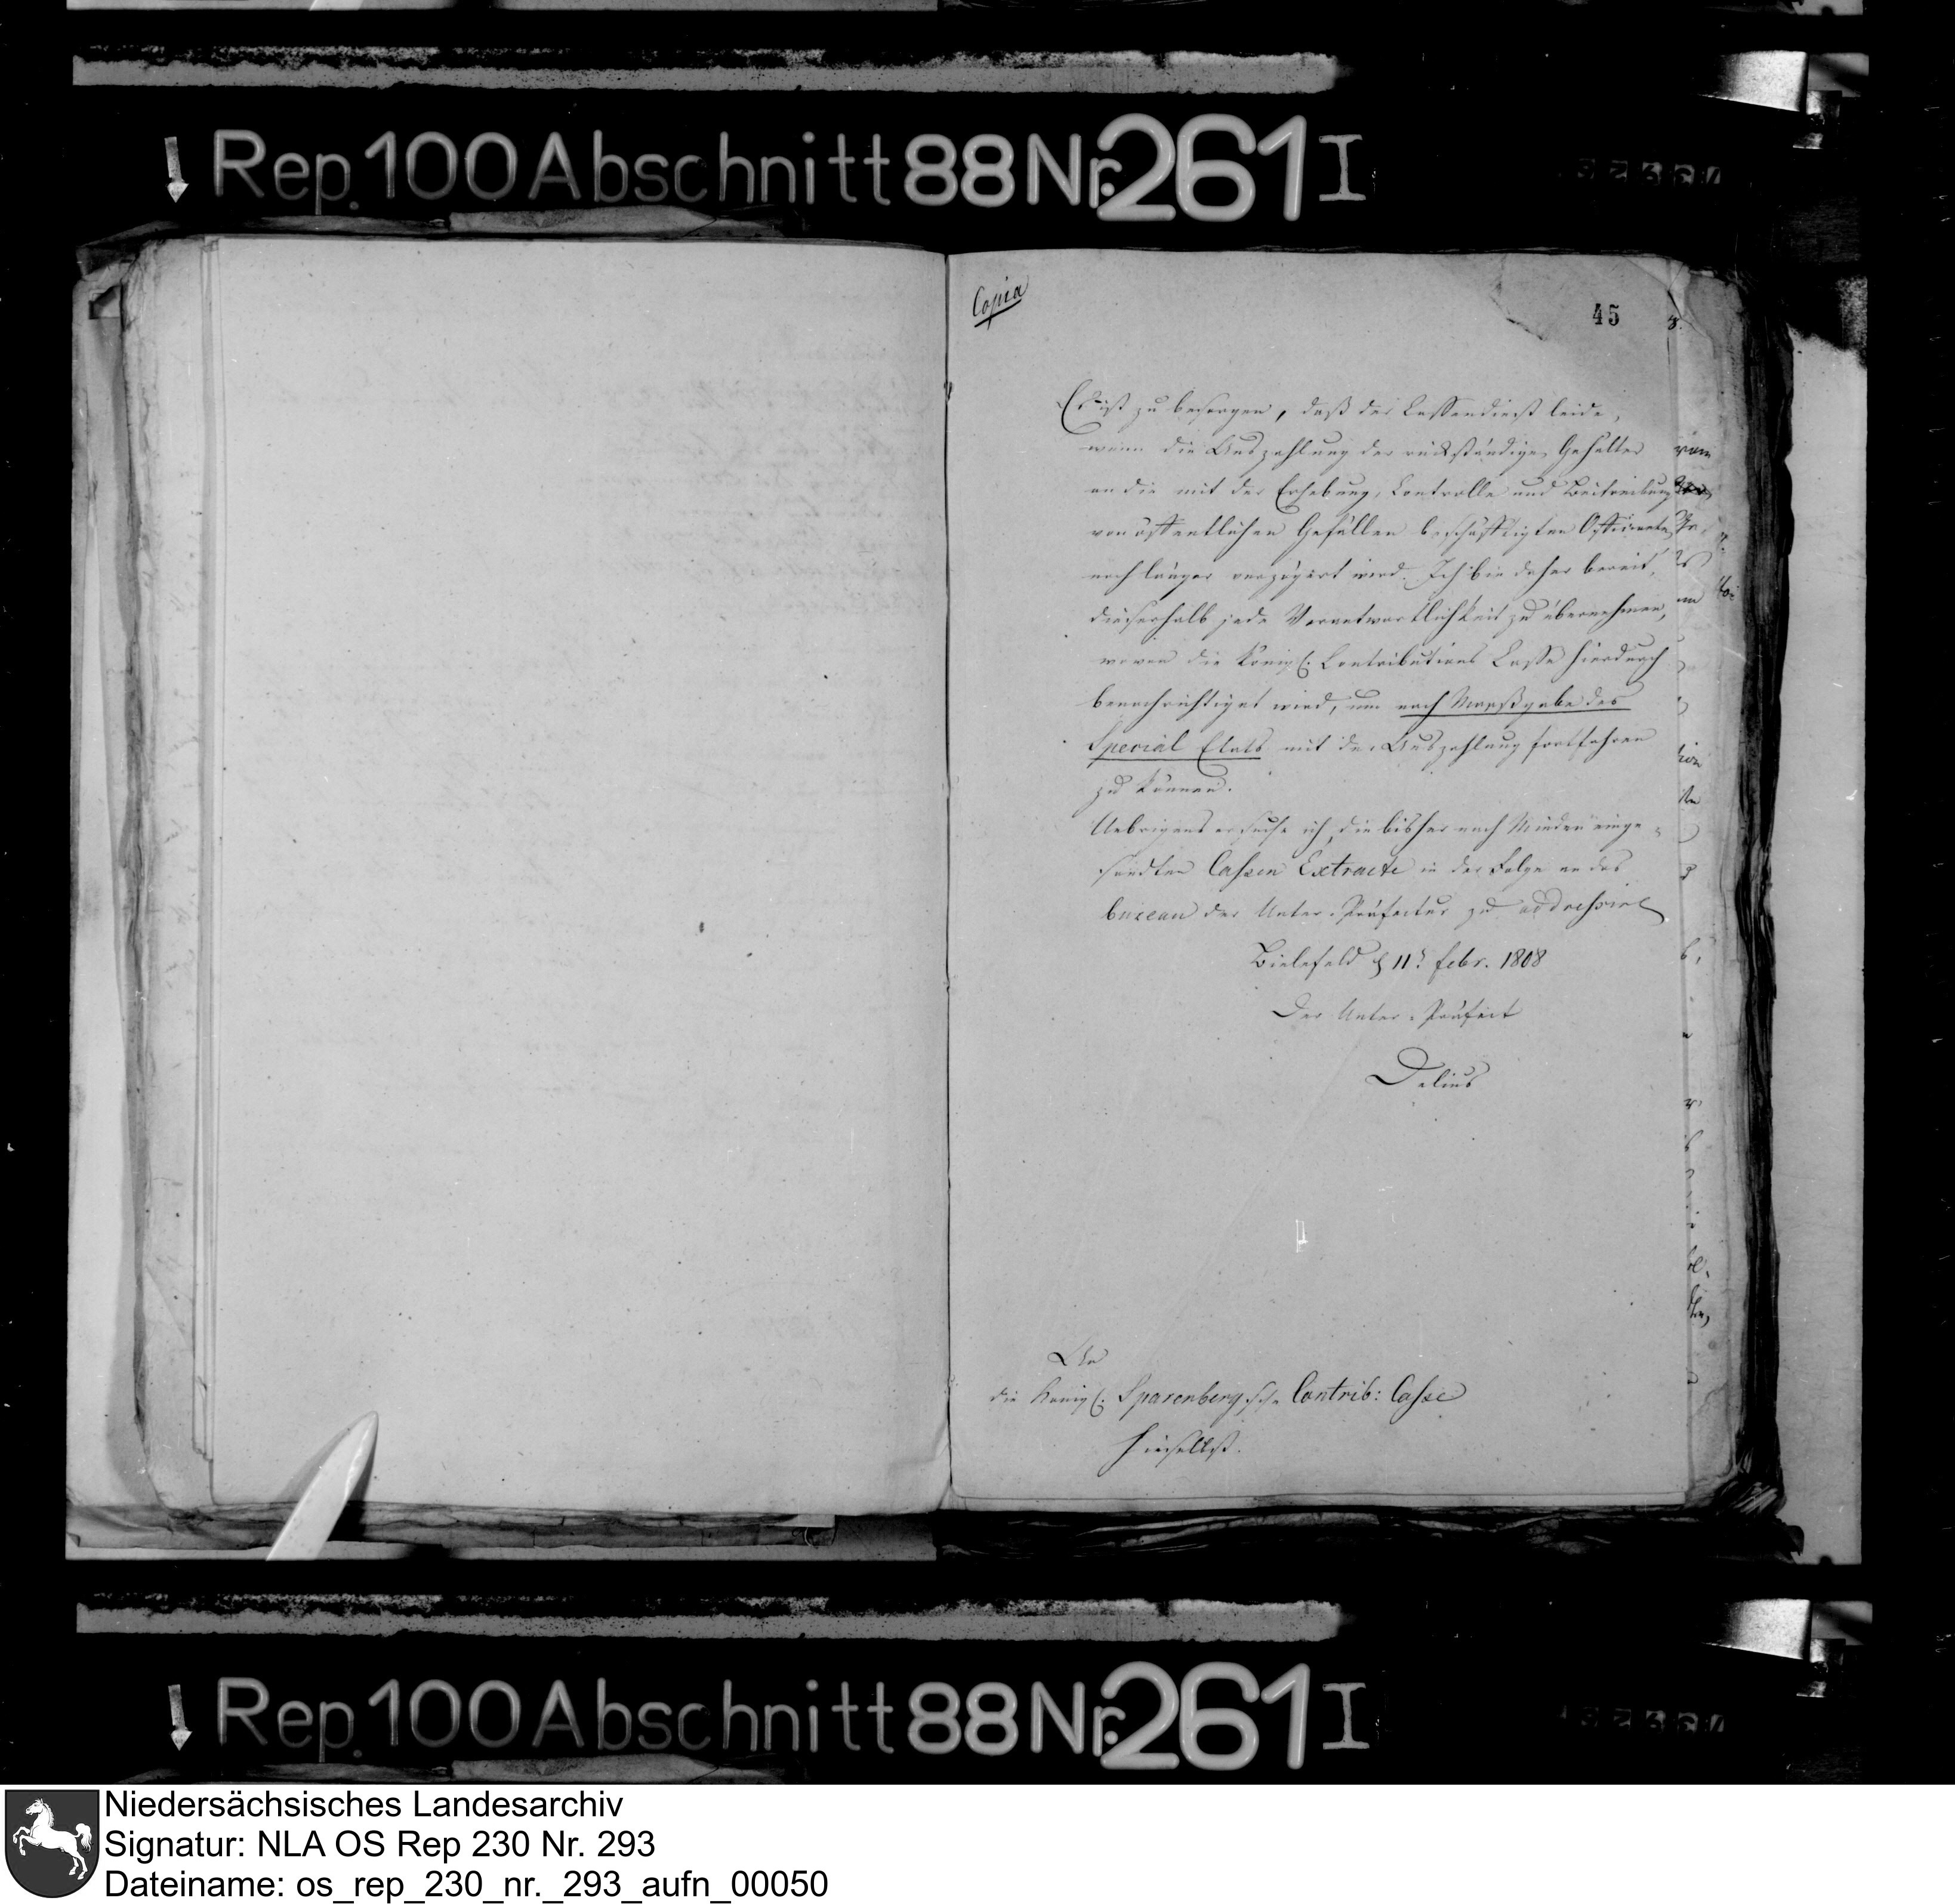 Rep. 100 Abschnitt 88 Nr. 261 I
Copia
45
Es ist zu besorgen, daß der Cassendienst leide,
wenn die Auszahlung der rückständigen Gehalter
an die mit der Erhebung, Controlle und Beitreibung
von öffentlichen Gefällen beschäftigten Officianten
noch länger verzögert wird. Ich bin daher bereit,
dieserhalb jede Verantwortlichkeit zu übernehmen,
wovon die Königl. Contributions Casse hierdurch
benachrichtiget wird, um nach Maaßgabe des
Special Etats mit der Auszahlung fortfahren
zu können.
Uebrigens ersuche ich, die bisher nach Minden einge=
sandten Cassen Extracte in der Folge an das
bureau der Unter=Präfectur zu addressiren
Bielefeld d 11t febr. 1808
Der Unter=Präfect
Delius
An
die Königl. Sparenbergsche Contrib: Casse
hieselbst.
Rep. 100 Abschnitt 88 Nr. 261 I
Niedersächsisches Landesarchiv
Signatur: NLA OS Rep 230 Nr. 293
Dateiname: os_rep_230_nr._293_aufn_00050